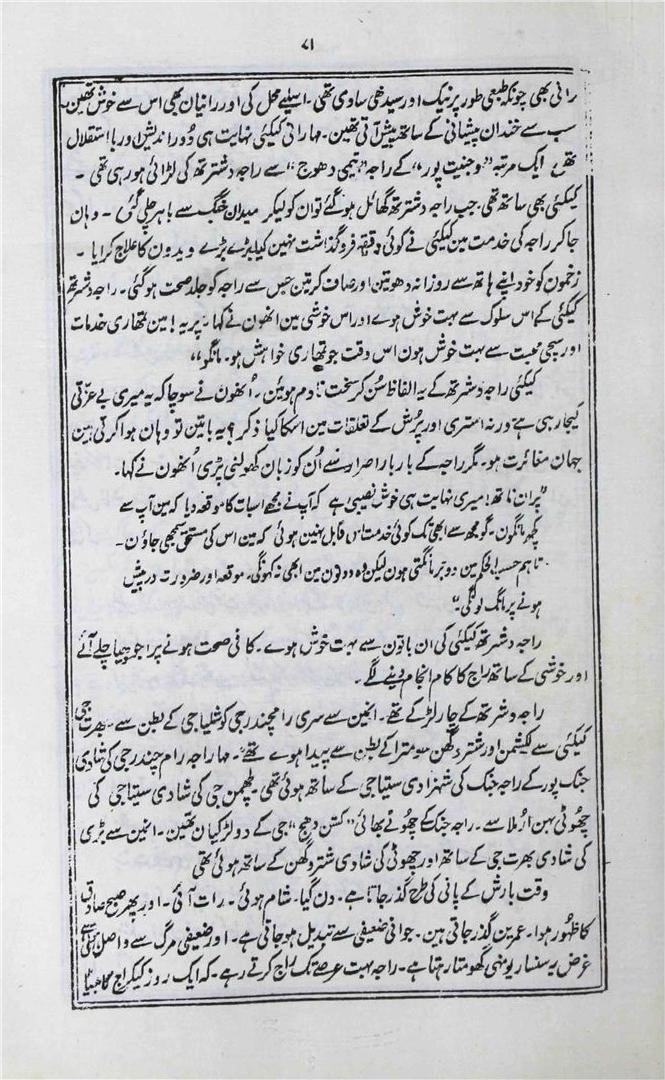 ۷۱
رانی بھی چونکہ طبعی طور پر نیک اور سیدھی سادی تھی۔ اسلیے محل کی اور رانیان بھی اس سے خوش تھین
سب سے خندان پیشانی کے ساتھ پیش آتی تھین۔ مہارانی کیکئی نہایت ہی دور اندیش اور با استقلال
تھی ایک مرتبہ "وجنیت پور" کے راجہ "تیمی دھوج" سے راجہ دشرتھ کی لڑائی ہو رہی تھی۔
کیکئی بھی ساتھ تھی۔ جب راجہ دشرتھ گھائل ہو گئے تو ان کو لیکر میدان جنگ سے باہر چلی گئی۔ وہان
جا کر راجہ کی خدمت مین کیکئی نے کوئی دقیقہ فروگذاشت نہین کیا۔ بڑے بڑے ویدون کا علاج کرایا۔
زخمون کو خود اپنے ہاتھ سے روزانہ دھوتین اور صاف کرتین جس سے راجہ کو جلد صحت ہو گئی۔ راجہ دشرتھ
کیکئی کے اس سلوک سے بہت خوش ہوے اور اس خوشی مین انھون نے کہا۔ پریہ! مین تمھاری خدمات
اور سچی محبت سے بہت خوش ہون اس وقت جو تمھاری خواہش ہو۔ مانگو"
کیکئی راجہ دشرتھ کے یہ الفاظ سن کر سخت نادم ہوئین۔ انھون نے سوچا کہ یہ میری بے عزتی
کیجا رہی ہے ورنہ استری اور پرش کے تعلقات مین اسکا کیا ذکر؟ یہ باتین تو وہان ہوا کرتی ہین
جہان مغائرت ہو۔ مگر راجہ کے بار بار اصرار سے اُن کو زبان کھولنی پڑی اُنھون نے کہا۔
"پران ناتھ! میری نہایت ہی خوش نصیبی ہے کہ آپ نے مجھے اسبات کا موقعہ دیا کہ مین آپ سے
کچھ مانگون۔ گو مجھ سے ابھی تک کوئی خدمت اس قابل نہین ہوئی کہ مین اس کی مستحق سمجھی جاؤن۔
تاہم حسب الحکم مین دو بر مانگتی ہون لیکن وہ دونون مین ابھی نہ کہونگی۔ موقعہ اور ضرورت درپیش
ہونے پر مانگ لونگی۔"
راجہ دشرتھ کیکئی کی ان باتون سے بہت خوش ہوے۔ کافی صحت ہونے پر اجودھیا چلے آئے
اور خوشی کے ساتھ راج کا کام انجام دینے لگے۔
راجہ دشرتھ کے چار لڑکے تھے۔ انہین سے سری رامچندر جی کوشلیا جی کے بطن سے۔ بھرت جی
کیکئی سے لکیشمن اور شتردگھن سومترا کے بطن سے پیدا ہوے تھے۔ مہاراجہ رام چندر جی کی شادی
جنک پور کے راجہ جنک کی شہزادی سیتا جی کے ساتھ ہوئی تھی۔ لچھمن جی کی شادی سیتا جی کی
چھوٹی بہن ارملا سے۔ راجہ جنک کے چھوٹے بھائی "کسن دھج" جی کے دو لڑکیان تھین۔ انہین سے بڑی
کی شادی بھرت جی کے ساتھ اور چھوٹی کی شادی شتردگھن کے ساتھ ہوئی تھی
وقت بارش کے پانی کی طرح گذر جاتا ہے۔ دن گیا۔ شام ہوئی۔ رات آئی۔ اور پھر صبح صادق
کا ظہور ہوا۔ عمرین گذر جاتی ہین۔ جوانی ضعیفی سے تبدیل ہو جاتی ہے۔ اور ضعیفی مرگ سے واصل ہوتی ہے
غرض یہ سنسار یونہی گھومتا رہتا ہے۔ راجہ بہت عرصے تک راج کرتے رہے۔ کہ ایک روز کیکراج کا بیٹا